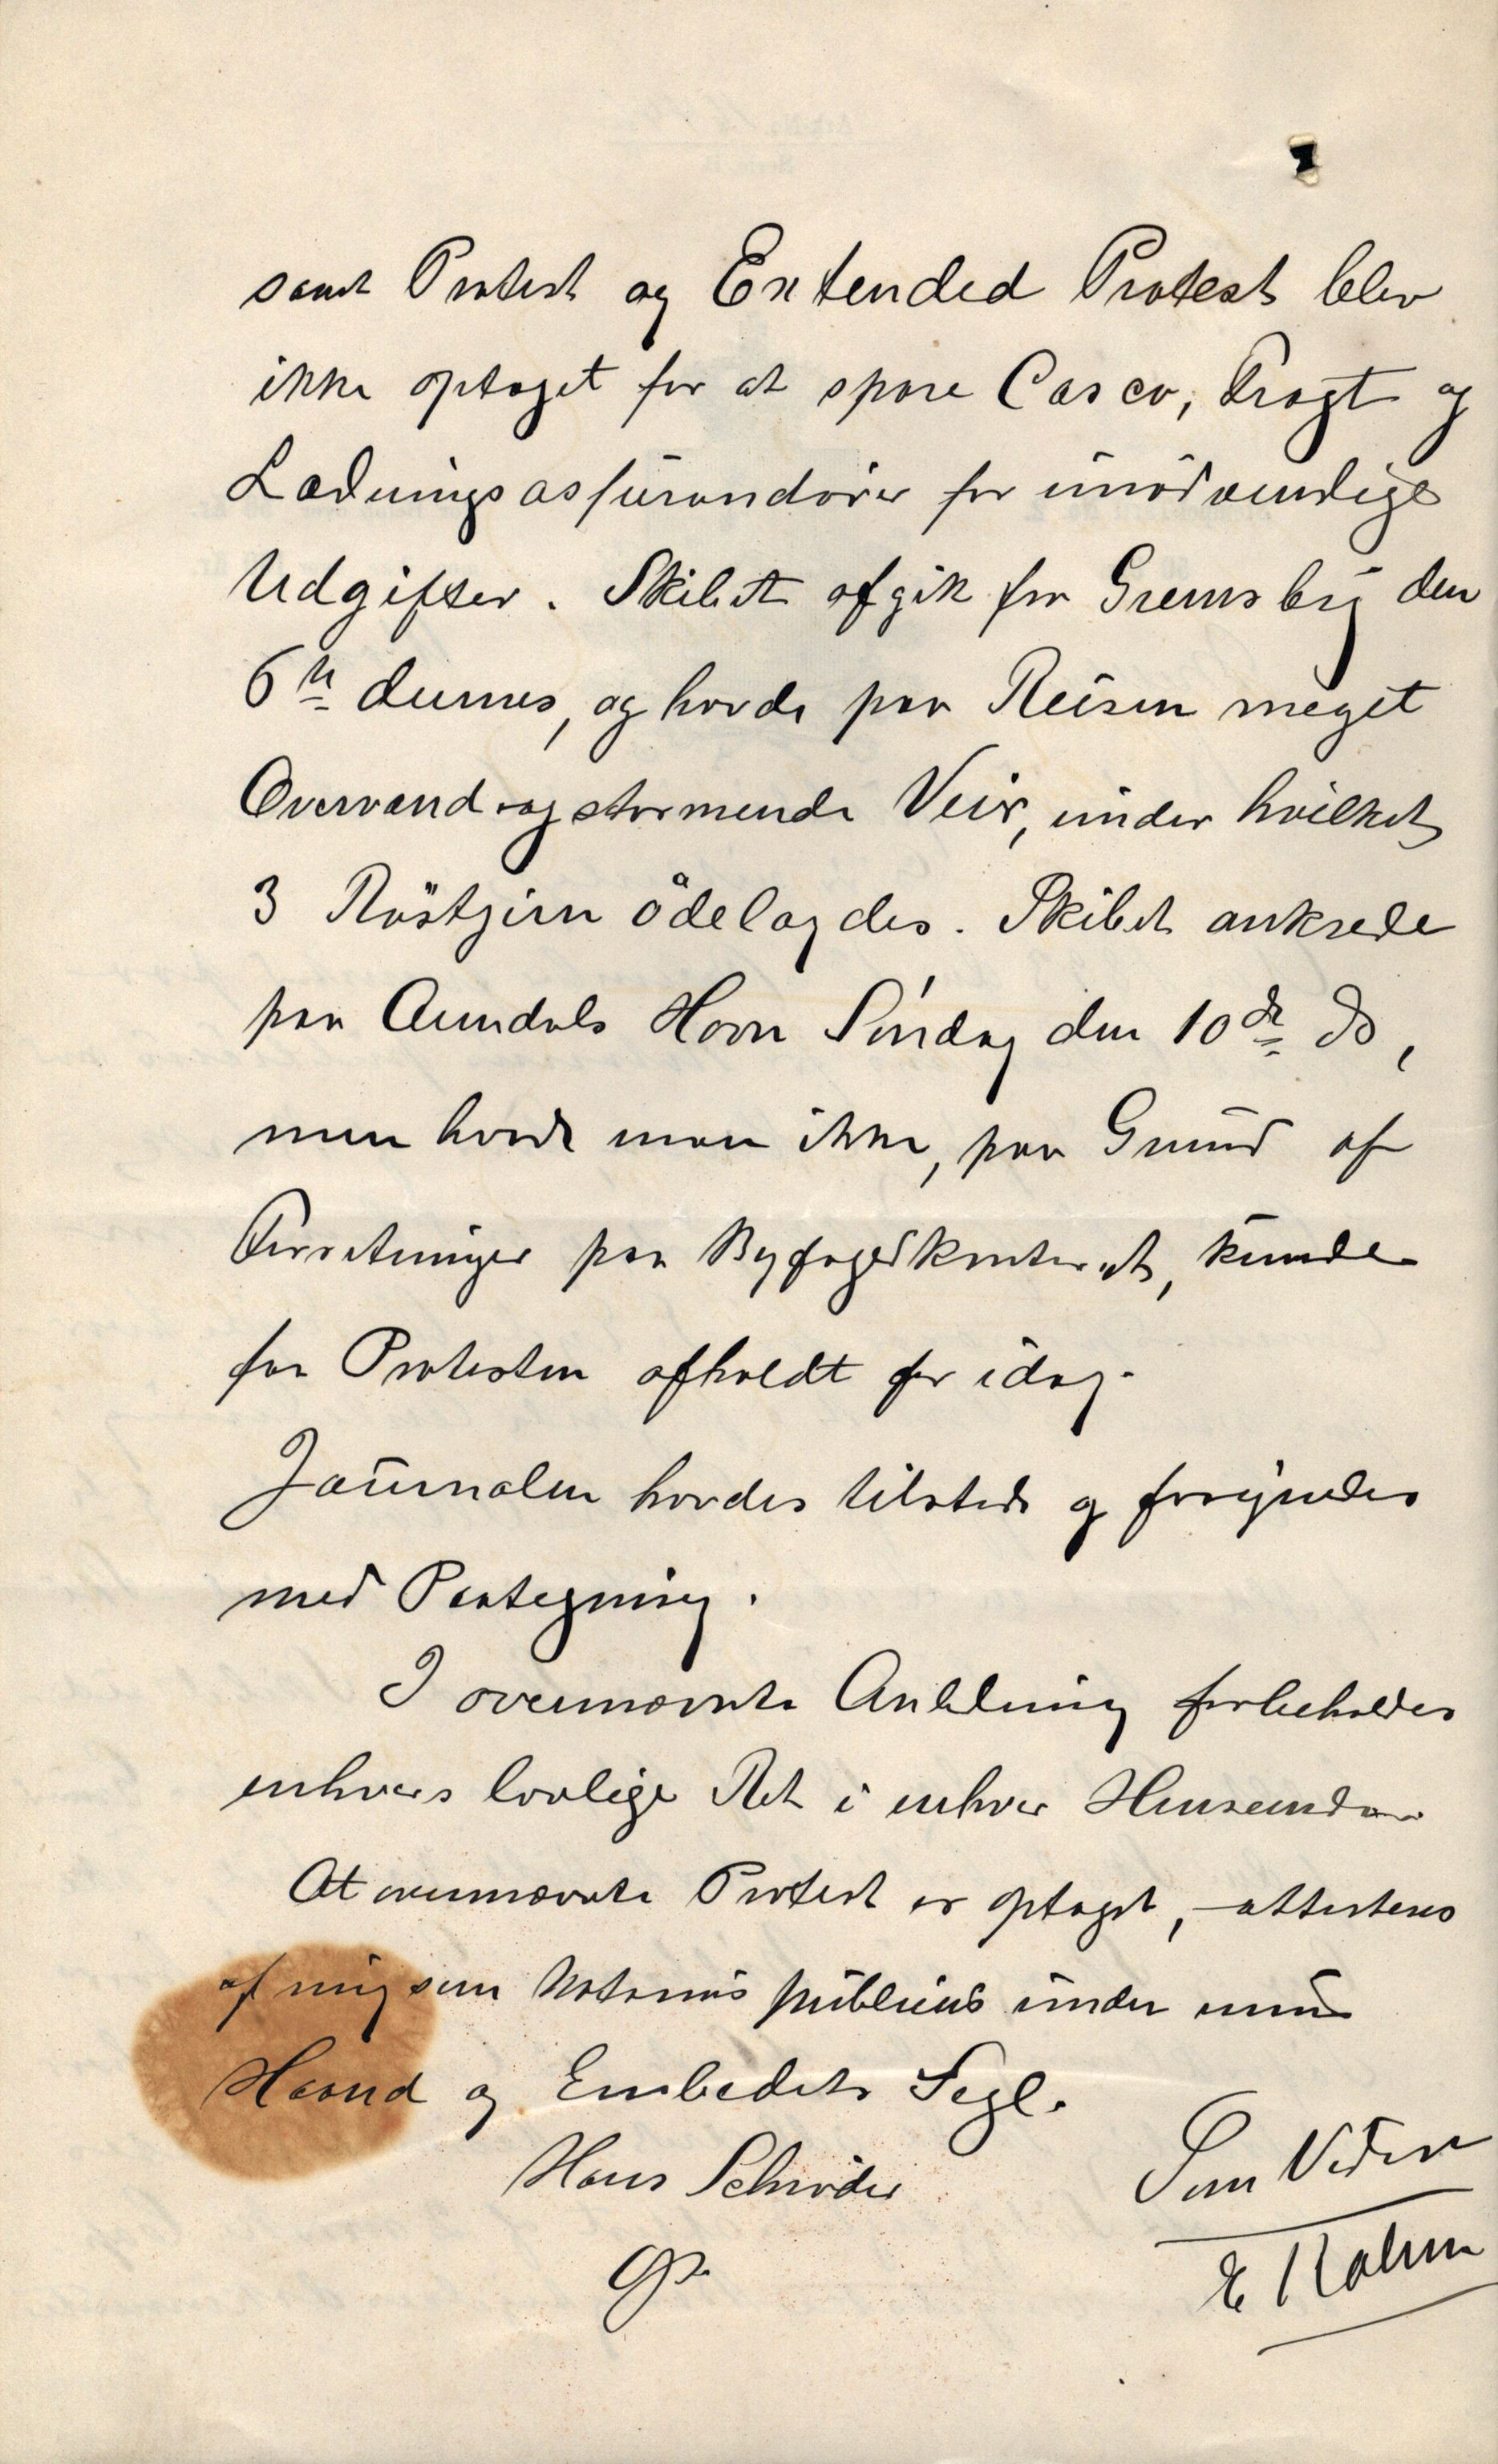 samt Protest og Extended Protest blev
ikke optaget for at spare Casco, Fragt og
Ladningsassurandører for unødvendige
Udgifter. Skibet afgik fra Gremsby den
6te dennes, og havde paa Reisen meget
Overvand og stormende Veir, under hvilket
3 Røstjern ødelagdes. Skibet ankrede
paa Arendals Havn Søndag den 10de do,
men havde man ikke, paa Grund af
Forretninger paa Byfogedkontoret, kunde
faa Protesten afholdt før idag.
Journalen havdes tilstede og forsynedes
med Paategning.
I overnævnte Anledning forbeholdes
enhvers lovlige Ret i enhver Henseende.
At overnævnte Protest er optaget, attesteres
af mig som Notarius publicus under min
Haand og Embedets Segl.
Hans Schrøder
gr.
Som Vidne
E